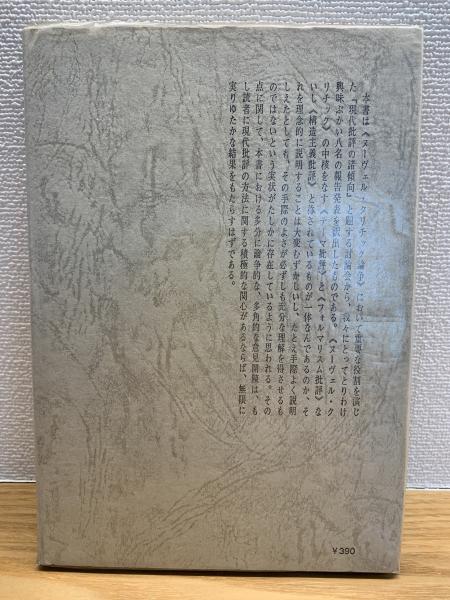 本書は《ヌーヴェル・クリチック論争》において重要な役割を演じ
た「現代批評の諸傾向」と題する討論会から、我々にとってとりわけ
興味ぶかい八名の報告発表を訳出したものである。《ヌーヴェル・ク
リチック》の中核をなす《テーマ批評》と《フォルマリスム批評》な
いし《構造主義批評》と称されているものが一体なんであるのか、そ
れを理念的に説明することは大変むずかしいし、たとえ手際よく説明
しえたとしても、その手際のよさが必ずしも充分な理解を得させるも
のではないという実状がたしかに存在しているように思われる。その
点に関して、本書における多分に論争的な、多角的な意見開陳は、も
し読者に現代批評の方法に関する積極的な関心があるならば、無限に
実りゆたかな結果をもたらすはずである。
￥390